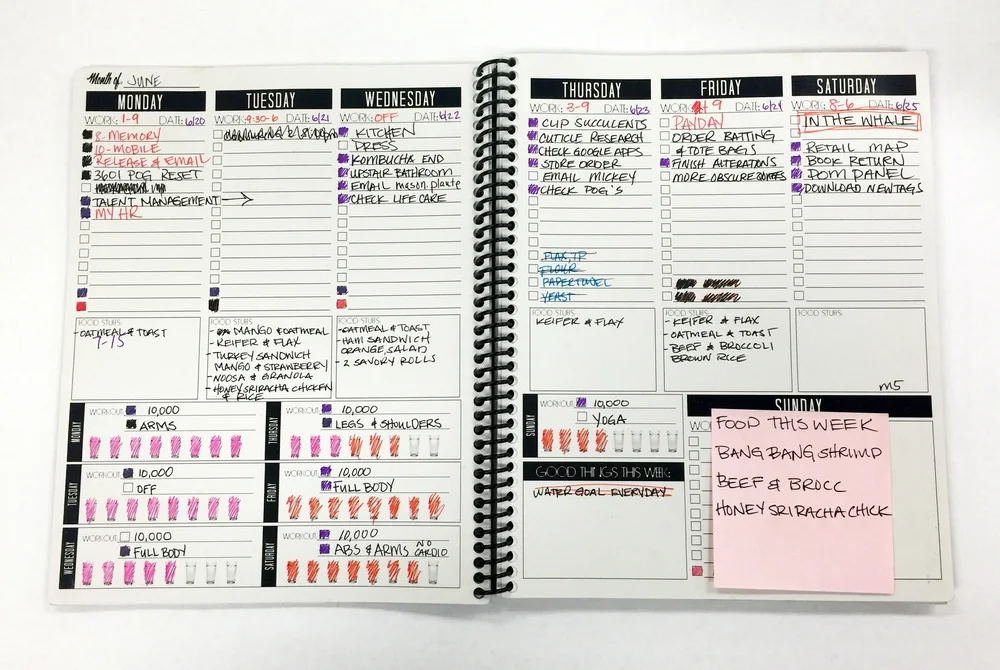 Month of JUNE
MONDAY
WORK: 1-9 DATE: 6/20
8-MEMORY
10-MOBILE
RELEASE & EMAIL
3601 POG RESET
TALENT MANAGEMENT
MY HR
FOOD STUFS:
-OATMEAL & TOAST
TUESDAY
WORK: 9:30-6 DATE: 6/21
FOOD STUFS:
- MANGO & OATMEAL
- KEIFER & FLAX
- TURKEY SANDWICH
MANGO & STRAWBERRY
- NOOSA & GRANOLA
- HONEY SRIRACHA CHICKEN
& RICE
WEDNESDAY
WORK: OFF DATE: 6/22
KITCHEN
DRESS
KOMBUCHA END
UPSTAIR BATHROOM
EMAIL mason plante
CHECK LIFE CARE
FOOD STUFS:
-OATMEAL & TOAST
- HAM SANDWICH
ORANGE, SALAD
- 2 SAVORY ROLLS
MONDAY
WORKOUT: 10,000
ARMS
TUESDAY
WORKOUT: 10,000
OFF
WEDNESDAY
WORKOUT: 10,000
FULL BODY
THURSDAY
WORKOUT: 10,000
LEGS & SHOULDERS
FRIDAY
WORKOUT: 10,000
FULL BODY
SATURDAY
WORKOUT: 10,000
ABS & ARMS NO CARDIO
THURSDAY
WORK: 3-9 DATE: 6/23
CLIP SUCCULENTS
CUTICLE RESEARCH
CHECK GOOGLE APPS
STORE ORDER
EMAIL MICKEY
CHECK POG'S
FLAX, TP
FLOUR
PAPERTOWEL
YEAST
KEIFER & FLAX
FRIDAY
WORK: 9 DATE: 6/24
PAYDAY
ORDER BATTING
& TOTE BAGS
FINISH ALTERATIONS
MORE OBSCURE
FOOD STUFS:
- KEIFER & FLAX
- OATMEAL & TOAST
- BEEF & BROCCOLI
BROWN RICE
SATURDAY
WORK: 8-6 DATE: 6/25
IN THE WHALE
RETAIL MAP
BOOK RETURN
DOM PANEL
DOWNLOAD NEW TAGS
FOOD STUFS:
m5
SUNDAY
WORKOUT: 10,000
YOGA
GOOD THINGS THIS WEEK:
WATER GOAL EVERYDAY
SUNDAY
FOOD THIS WEEK
BANG BANG SHRIMP
BEEF & BROCC
HONEY SRIRACHA CHICK